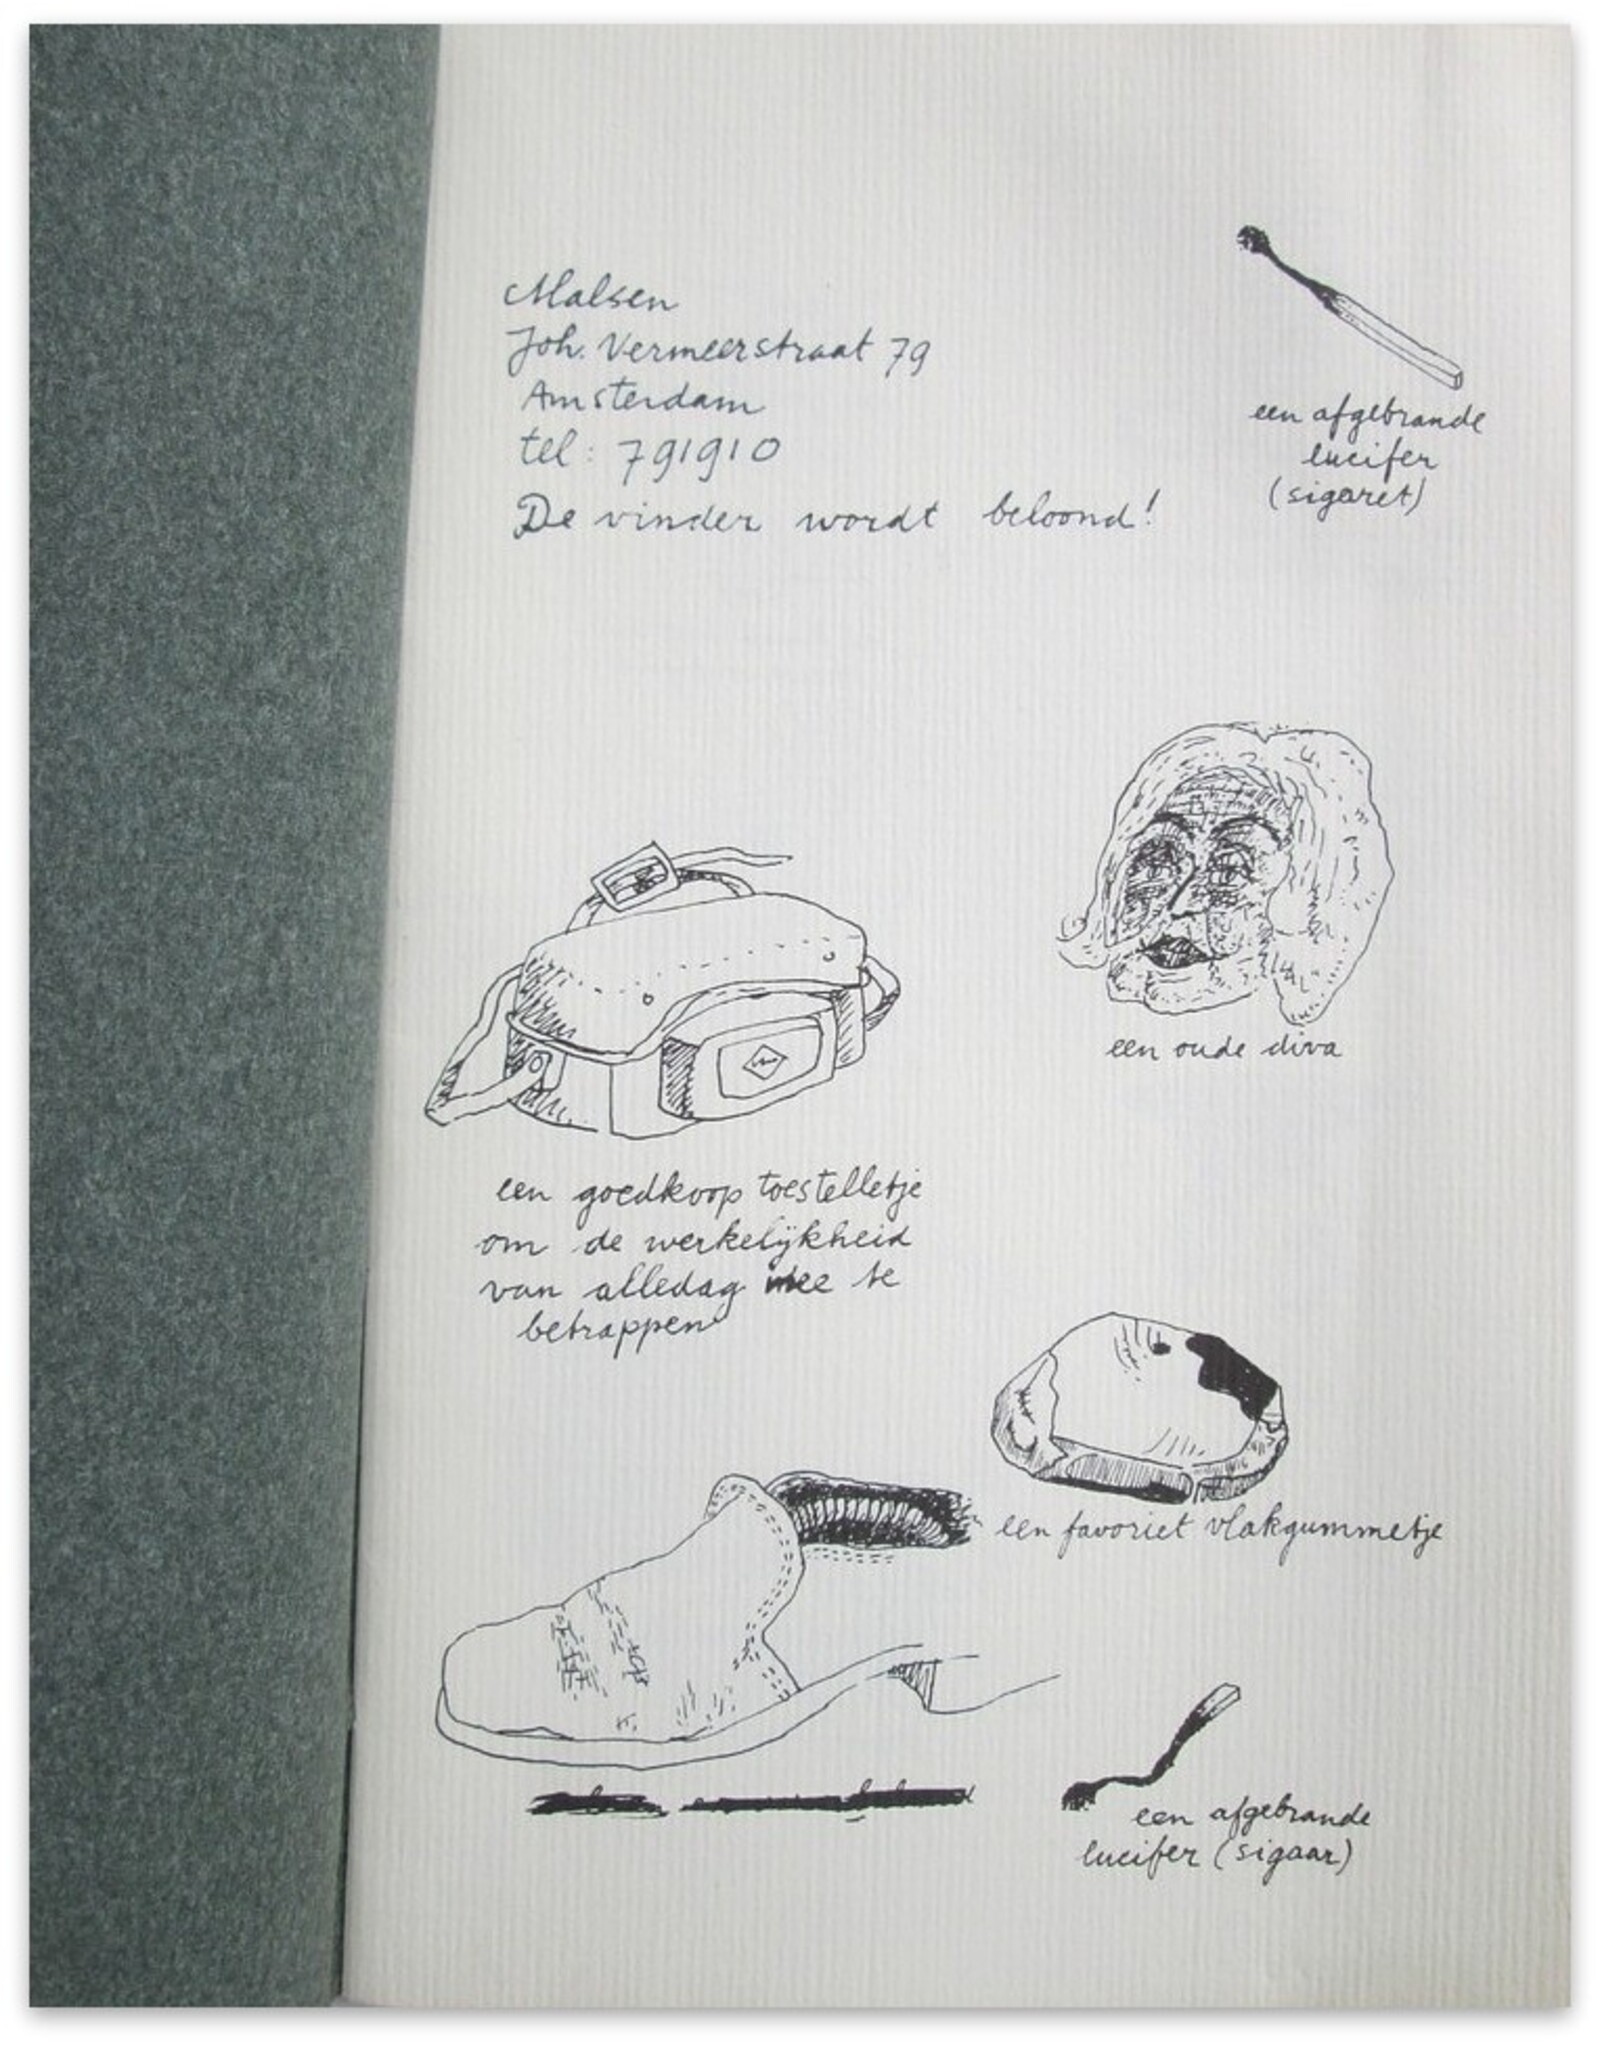 Malsen
Joh. Vermeerstraat 79
Amsterdam
tel: 791910
De vinder wordt beloond!
een afgebrande
lucifer
(sigaret)
een oude diva
een goedkoop toestelletje
om de werkelijkheid
van alledag mee te
betrappen
een favoriet vlakgummetje
een afgebrande
lucifer (sigaar)